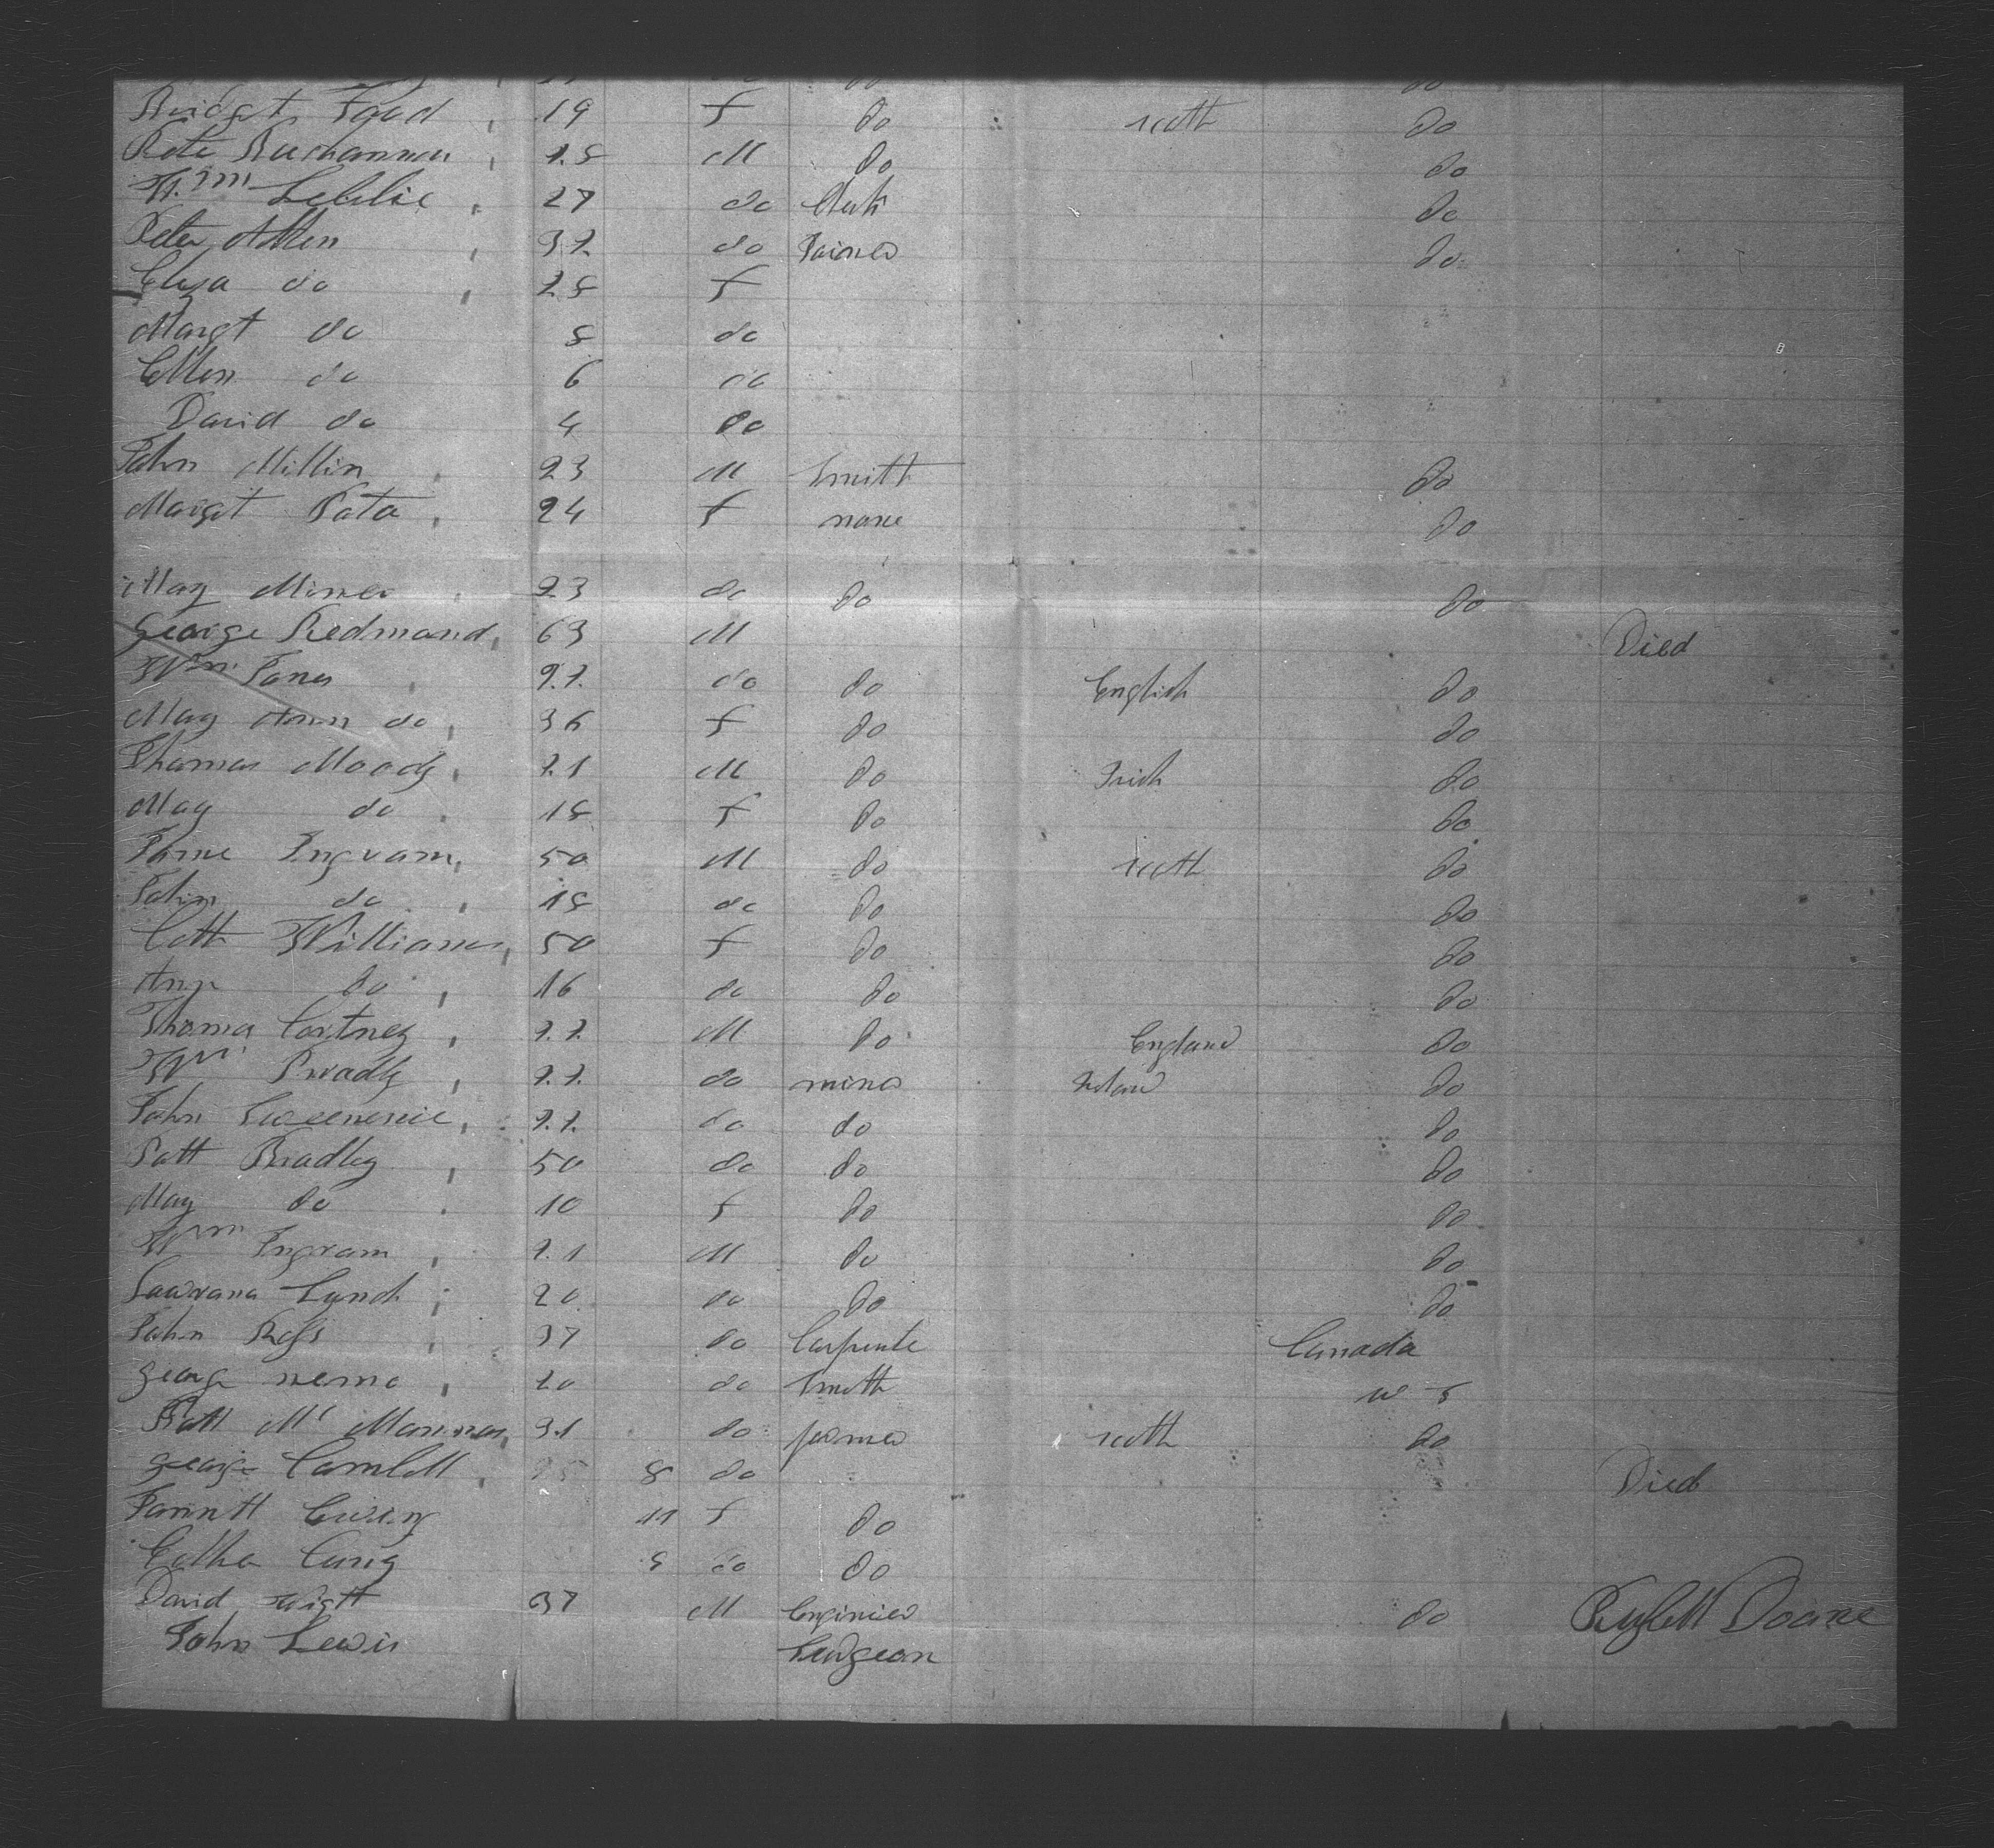 Bridget Food, 19 f do scoth do
Pete Buchannan, 25 M do do
Wm Leblie, 27 do Clerk do
Peter Allen, 32 do Joiner do
Eliza do, 25 f
Margt do 8 do
Ellen do 6 do
David do 4 do
John Millin, 23 M Smith do
Margt Pata, 24 f none do
May Miner, 23 do do do
George Redmand, 63 M Died
Wm Jones, 22 do do English do
May Ann do, 36 f do do
Thomas Moody, 21 M do Irish do
May do, 18 f do do
Ingram, 50 M do scoth do
John do, 18 do do do
Cath Williams, 50 f do do
Ann do, 16 do do do
Thomas Cortney, 22 M do England do
Wm Bradly, 22 do miner do
John Sweenenie, 22 do do do
Patt Bradley, 50 do do do
May do, 10 f do do
Wm Ingram, 21 M do do
Lawrana Lynch, 20 do do do
John Ross, 37 do Carpente Canada
George nemo, 20 do Smith
Patt Mc Mannas, 31 do farmer scoth do
George Camlell, 8 do Died
Jannett 11 f do
8 do do
David Wight 37 M Enginier do Doane
John Lewis Surgeon